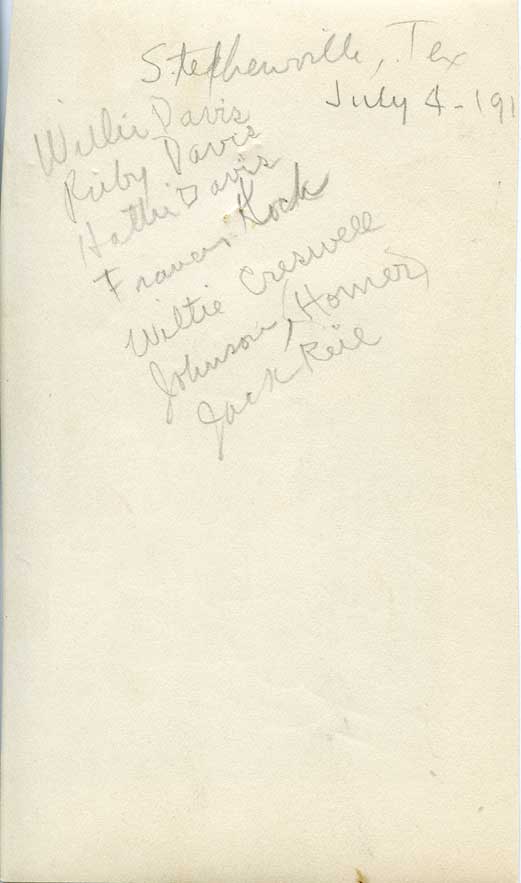 Stephenville, Tex
July 4-191
Willie Davis
Ruby Davis
Hattie Davis
Frances Kock
Willie Creswell
Johnson, (Homer)
Jack Reil